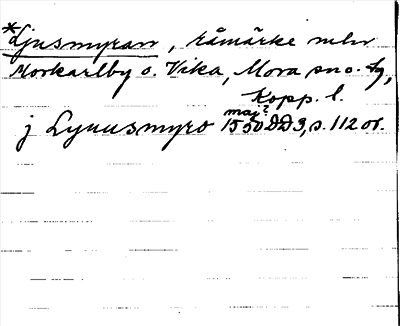 *Ljusmyran, råmärke mln
Morkarlby o. Vika, Mora sn o. tg,
Kopp. l.
maj?
j Lyuusmyro 1550 DD 3, s. 112 or.